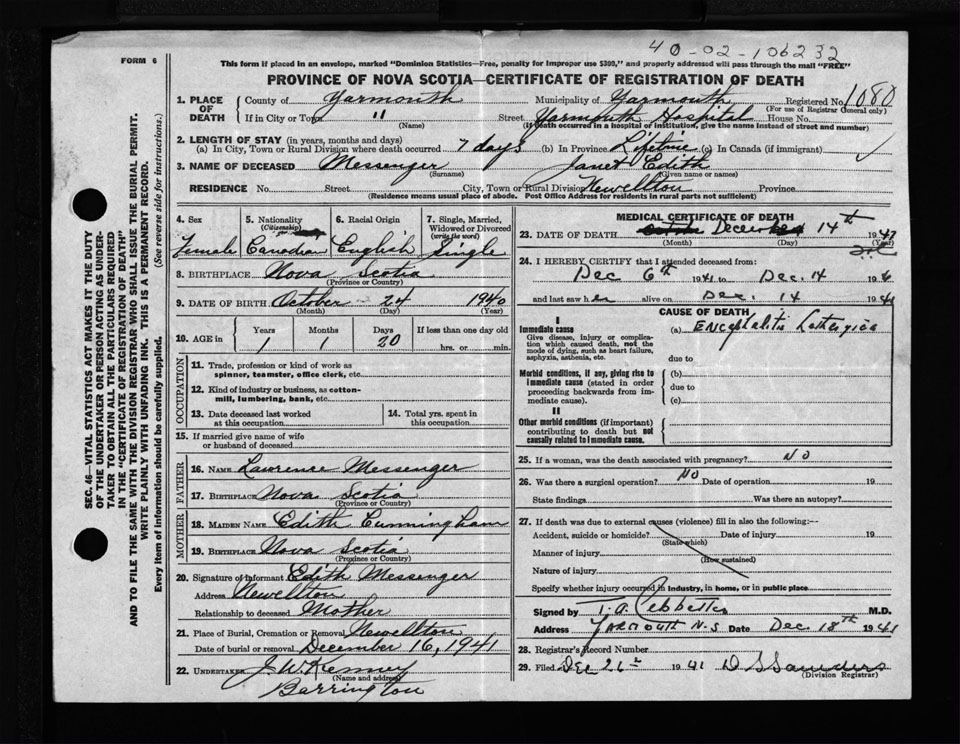 40-02-106232
FORM 6
This form if placed in an envelope, marked "Dominion Statistics—Free, penalty for improper use $300," and properly addressed will pass through the mail "FREE"
PROVINCE OF NOVA SCOTIA—CERTIFICATE OF REGISTRATION OF DEATH
1. PLACE OF DEATH County of Yarmouth Municipality of Yarmouth Registered No. 1080
(For use of Registrar General only)
If in City or Town " Street Yarmouth Hospital House No.
(Name) (If death occurred in a hospital or institution, give the name instead of street and number)
2. LENGTH OF STAY (in years, months and days)
(a) In City, Town or Rural Division where death occurred 7 days (b) In Province Lifetime (c) In Canada (if immigrant)
3. NAME OF DECEASED Messenger Janet Edith
(Surname) (Given name or names)
RESIDENCE No. Street City, Town or Rural Division Newellton Province
(Residence means usual place of abode. Post Office Address for residents in rural parts not sufficient)
4. Sex Female
5. Nationality (Citizenship) Canadian
6. Racial Origin English
7. Single, Married, Widowed or Divorced (write the word) Single
8. BIRTHPLACE Nova Scotia
(Province or Country)
9. DATE OF BIRTH October 24 1940
(Month) (Day) (Year)
10. AGE in Years 1 Months 1 Days 20 If less than one day old
hrs. or min.
OCCUPATION
11. Trade, profession or kind of work as spinner, teamster, office clerk, etc.
12. Kind of industry or business, as cotton-mill, lumbering, bank, etc.
13. Date deceased last worked at this occupation
14. Total yrs. spent in this occupation
15. If married give name of wife or husband of deceased
FATHER
16. NAME Lawrence Messenger
17. BIRTHPLACE Nova Scotia
(Province or Country)
MOTHER
18. MAIDEN NAME Edith Cunningham
19. BIRTHPLACE Nova Scotia
(Province or Country)
20. Signature of Informant Edith Messenger
Address Newellton
Relationship to deceased Mother
21. Place of Burial, Cremation or Removal Newellton
Date of burial or removal December 16, 1941
22. UNDERTAKER J. W. Kenney
(Name and address)
Barrington
MEDICAL CERTIFICATE OF DEATH
23. DATE OF DEATH December 14th 19
(Month) (Day) (Year)
24. I HEREBY CERTIFY that I attended deceased from:
Dec 6th 1941 to Dec. 14 19
and last saw her alive on Dec. 14 1941
CAUSE OF DEATH
I
Immediate cause (a) Encephalitis Lethargica
Give disease, injury or complication which caused death, not the mode of dying, such as heart failure, asphyxia, asthenia, etc.
due to
Morbid conditions, if any, giving rise to immediate cause (stated in order proceeding backwards from immediate cause).
(b)
due to
(c)
II
Other morbid conditions (if important) contributing to death but not causally related to immediate cause.
25. If a woman, was the death associated with pregnancy? NO
26. Was there a surgical operation? NO Date of operation 19
State findings Was there an autopsy?
27. If death was due to external causes (violence) fill in also the following:—
Accident, suicide or homicide? Date of injury 19
(State which)
Manner of injury
(How sustained)
Nature of injury
Specify whether injury occurred in industry, in home, or in public place
Signed by T. A. Lebbetter M.D.
Address Yarmouth N.S Date Dec. 18th 1941
28. Registrar's Record Number
29. Filed Dec 26 1941 D S Saunders
(Division Registrar)
SEC. 46—VITAL STATISTICS ACT MAKES IT THE DUTY OF THE UNDERTAKER OR PERSON ACTING AS UNDERTAKER TO OBTAIN ALL THE PARTICULARS REQUIRED IN THE "CERTIFICATE OF REGISTRATION OF DEATH" AND TO FILE THE SAME WITH THE DIVISION REGISTRAR WHO SHALL ISSUE THE BURIAL PERMIT.
WRITE PLAINLY WITH UNFADING INK. THIS IS A PERMANENT RECORD.
Every item of information should be carefully supplied. (See reverse side for instructions.)